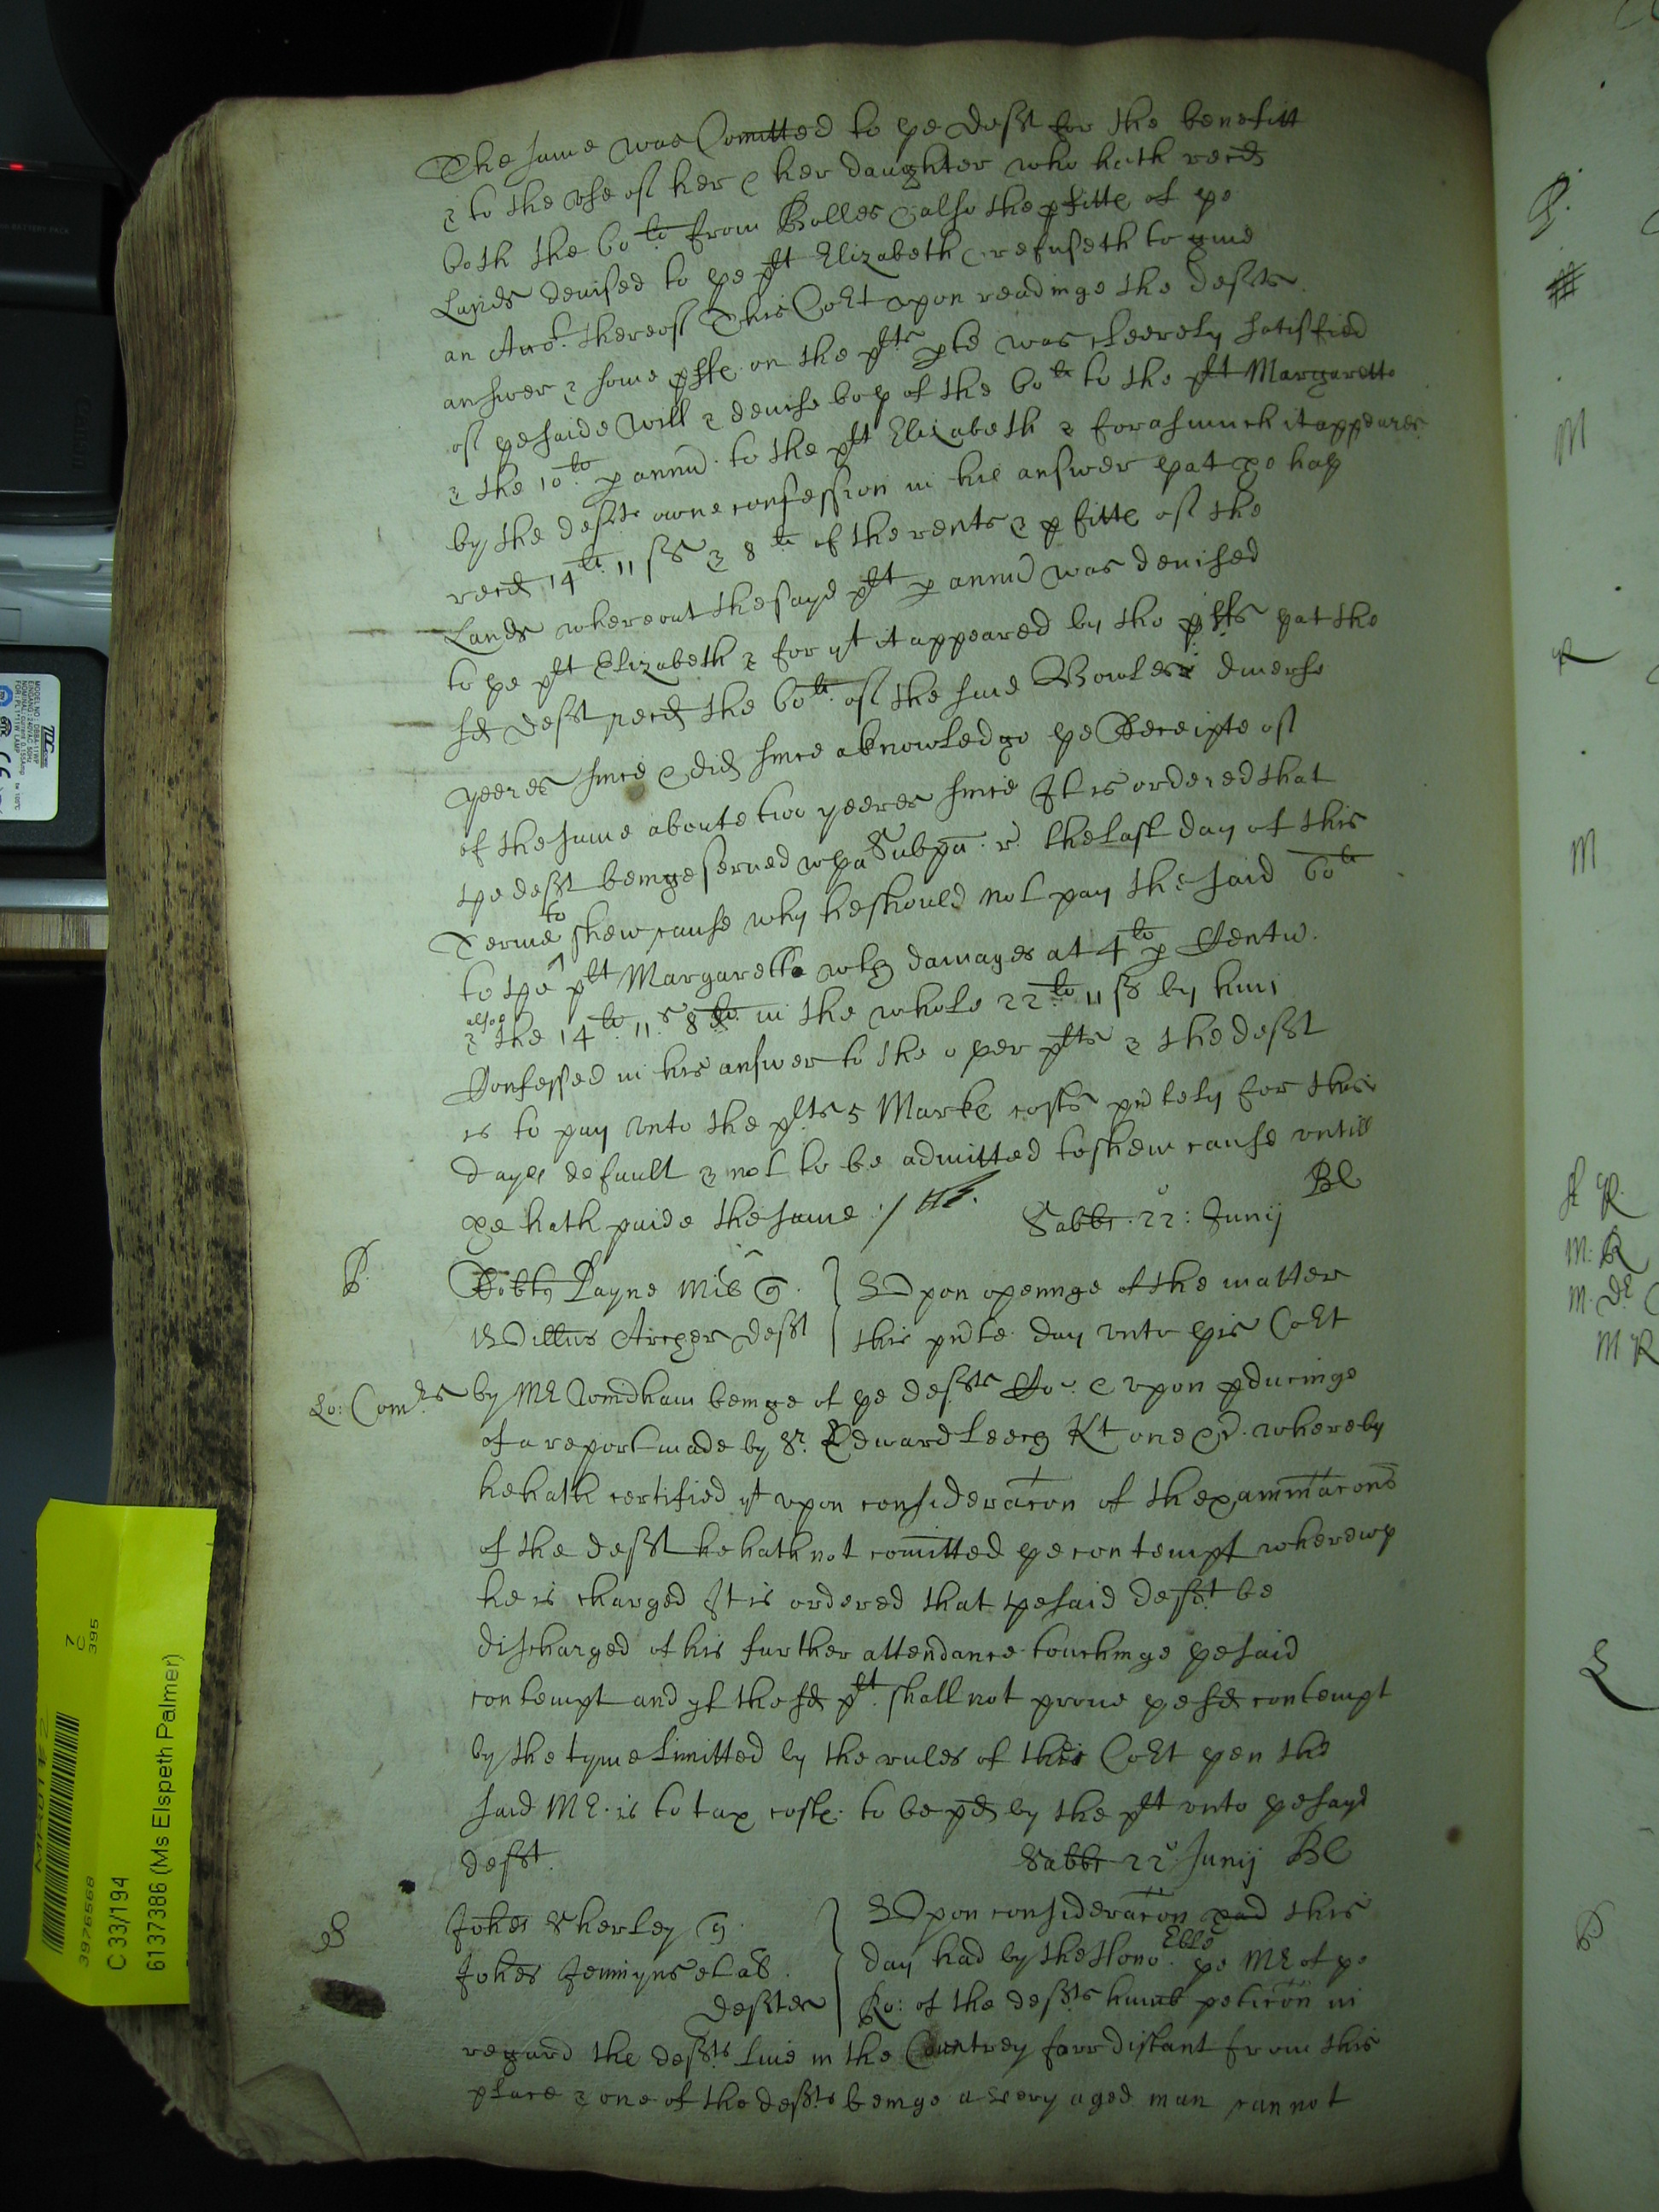 The same was Comitted to ye deft for the benefitt
& to the vse of her & her daughter who hath recd
both the 60li from Bolles & also the pfitte of ye
Lands deuised to ye plt Elizabeth & refuseth to giue
an Acco: thereof This Cort vpon readinge the defts
answer & some pffe on the plts pte was cleerely satisfied
of ye saide Will & deuise boy of the 60li to the plt Margarette
& the 10li p annu to the plt Elizabeth & forasmuch it appeares
by the defts owne confession in his answer yat he hay
recd 14li 11ss & 8 of the rents & pfitte of the
Lands whereout the sayd plt p annu was deuised
to ye plt Elizabeth & for yt it appeared by the pffs yat the
sd deft recd the 60li of the said Bowles diuerse
yeeres since & did since aknowledge ye Receipte of
of the same aboute two yeeres since It is ordered that
ye deft beinge serued wya Subpa r the last day of this
Terme to shew cause why he should not pay the said 60li
to ye plt Margarette wth damages at 4li p Centu.
& also the 14li 11s 8 in the whole 22li 11ss by him
Confessed in his answer to the oyer plts & the deft
is to pay vnto the plts 5 Marke costs pntely for this
dayes default & not to be admitted to shew cause vntill
he hath paide the same :/
Sabbi 22: Junij Bl
P.
Robtus Payne Mil q.
Willus Archer deft
Vpon openinge of the matter
this pnte day vnto yis Cort
Lo: Com
by Mr Windham beinge of ye defts Co: & vpon pducinge
of a report made by Sr. Edward Leech Kt one &c. whereby
he hath certified yt vpon consideracon of thexaminacons
of the deft he hath not comitted ye contempt wherewy
he is charged It is ordered that ye said deft be
discharged of his further attendance touchinge ye said
contempt and yf the sd plt shall not proue ye sd contempt
by the tyme limitted by the rules of this Cort yen the
said Mr. is to tax coste to be pd by the plt vnto ye sayd
deft.
Sabbi 22 Junij Bl
S
Johes Sherley q.
Johes Jennyns et al
deftes
Vpon consideracon had this
day had by the Honoble ye Mr of ye
Ro: of the defts humb peticon in
regard the defts liue in the Countrey farr distant from this
place & one of the defts beinge a very aged man cannot
TDC
MODEL NO
LAMP
MFRU1#2
7
C
395
3976568
C 33/194
6137386 (Ms Elspeth Palmer)